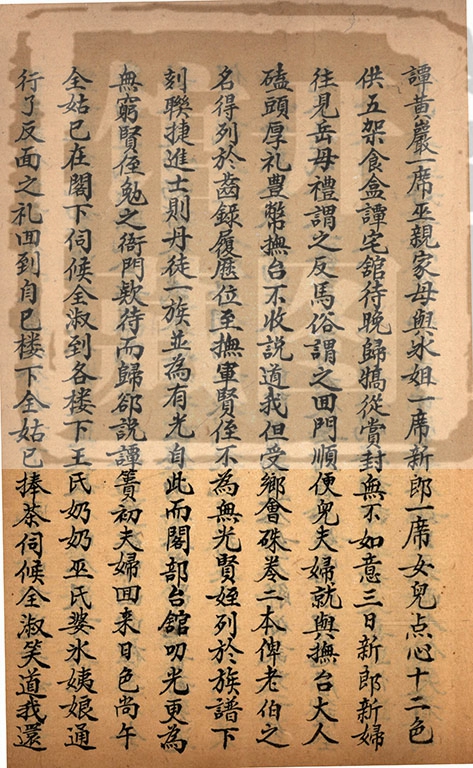 譚黄巖一席巫親家母與氷姐一席新郎一席女兒点心十二色
供五架食盒譚宅舘待晚歸犒從賞封無不如意三日新郎新婦
往見岳母禮謂之反馬俗謂之囬門順便兒夫婦就與撫台大人
磕頭厚礼豊幣撫台不收説道我但受鄉會硃卷二本俾老伯之
名得列於齒錄履歷位至撫軍賢侄不為無光賢姪列於族譜下
刻聯捷進士則丹徒一族並為有光自此而閣部台舘叨光更為
無窮賢侄勉之衙門欵待而歸卻説譚簣初夫婦囬来日色尚午
全姑已在閣下伺候全淑到各楼下王氏奶奶巫氏婆氷姨娘通
行了反面之礼囬到自已楼下全姑已捧茶伺候全淑笑道我還